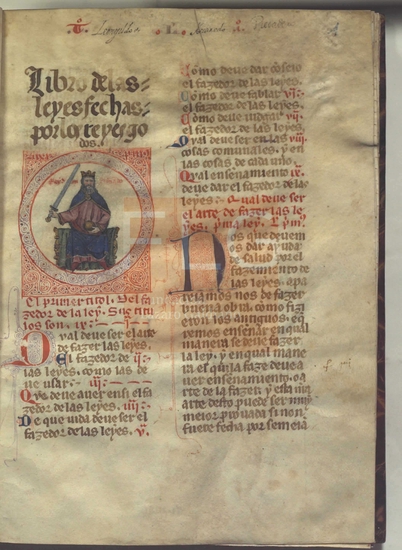 Libro delas
leyes fechas
por los reyes go
dos.
El primer titol. Del fa
zedor de la ley. Sue titu
los son. ix.
Qual deue ser el arte
de fazer las leyes.
El fazedor de ij:
las leyes. como las de
ue usar. iij:
Que deue auer en si el fa
zedor de las leyes. iiij:
De que vida deue ser el
fazedor de las leyes. v.
Cómo deue dar coseio
el fazedor de las leyes.
Cómo deue fablar vij:
el fazedor de las leyes.
Cómo deue iudgar viij:
el fazedor de las leyes.
Qual deue ser en las viij:
cosas comunales. y en
las cosas de cada uno.
Qual enseñamiento ix.
deue dar el fazedor de las
leyes. Qual deue ser
el arte de fazer las le
yes. primera ley.
Nos que deuem
os dar ayuda
de salud por el
fazemiento de
las leyes. apa
reiamos nos de fazer
buena obra. como fizi
eron los antigos. e q
remos enseñar en qual
manera se deue fazer
la ley. y en qual mane
ra el q la faze deue a
uer enseñamiento. o a
rte de la fazer. y esta
arte desto puede ser muy
meior prouada si non
fuere fecha por semeia